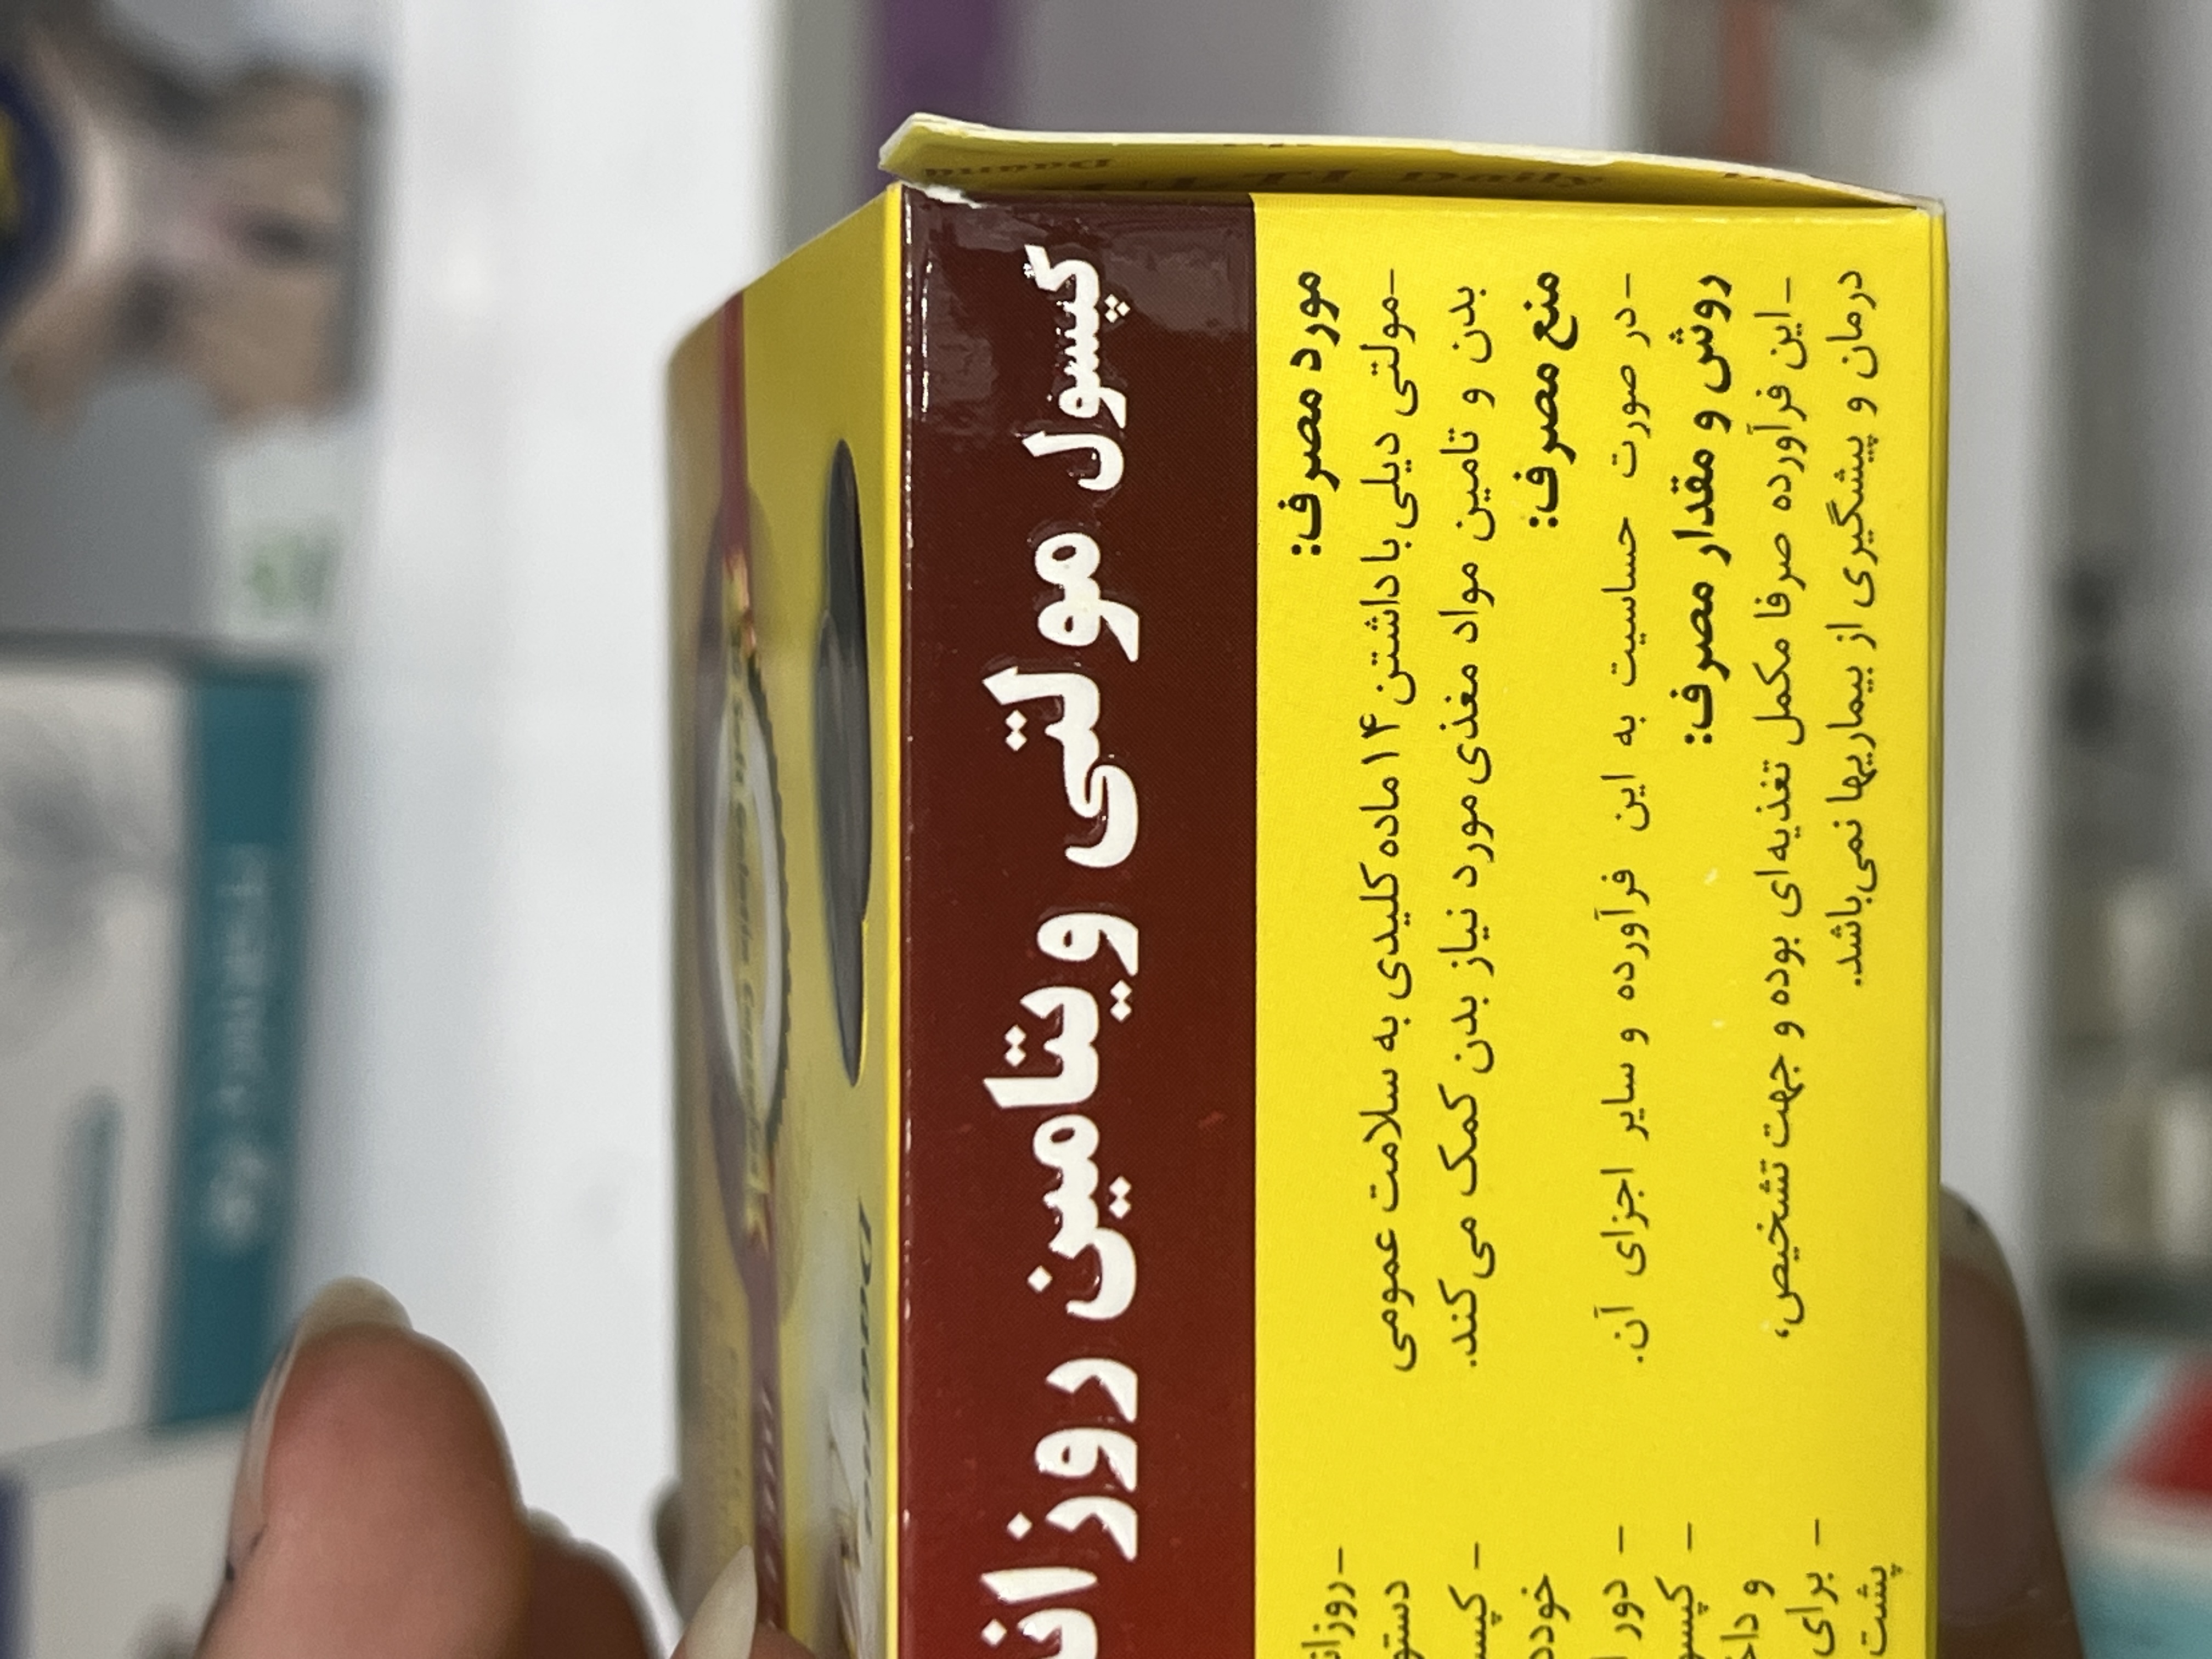 Daily
کپسول مولتی ویتامین دوز
مورد مصرف:
-مولتی دیلی با داشتن ۱۴ ماده کلیدی به سلامت عمومی
بدن و تامین مواد مغذی مورد نیاز بدن کمک می کند.
منع مصرف:
-در صورت حساسیت به این فرآورده و سایر اجزای آن.
روش و مقدار مصرف:
-این فرآورده صرفا مکمل تغذیه ای بوده و جهت تشخیص،
درمان و پیشگیری از بیماریها نمی باشد.
- دور
- برای
پشت